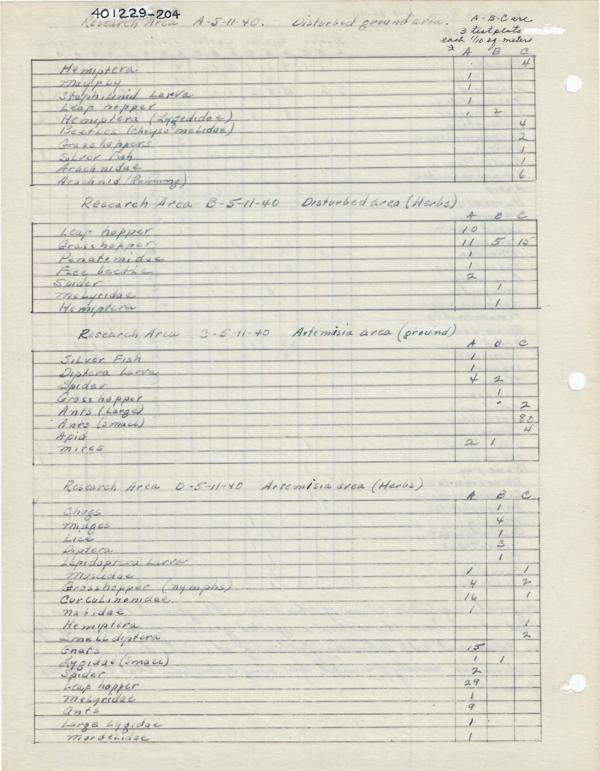 401229-204
Research Area A-5-11-40. Disturbed ground area. A-B-C are
3 test plots
each 1/10 sq. meters
A B C
Hemiptera 4
Mayfly 1
Staphilinid Larva 1
Leap hopper 1
Hemiptera (Lygedidae) 1 2
Beetles (Chryso melidae) 4
Grasshoppers 2
Silver Fish 1
Arachnidae 1
Arachnid 6
Research Area B-5-11-40 Disturbed area (Herbs)
A B C
Leap hopper 10
Grasshopper 11 5 15
Penatemidae 1
Flee beetle 1
Spider 2
Melyridae 1
Hemiptera 1
Research Area C-5-11-40 Artemisia area (ground)
A B C
Silver Fish 1
Diptera Larva 1
Spider 4 2
Grosshopper 1
Ants (Large) 2
Ants (Small) 80
Apid 4
mites 2 1
Research Area D-5-11-40 Artemisia area (Herbs)
A B C
1
Midges 4
Lice 1
Diptera 3
Lepidoptera Larva 1
Muscidae 1 1
Grasshopper (nymphs) 4 2
Curculinomidae 16 1
Nabidae 1
Hemiptera 1
Small diptera 2
Gnats 15
Lygidae (Small) 1 1
Spider 2
Leap hopper 29
Melyridae 1
Ants 9
Large Lygidae 1
Mordelidae 1